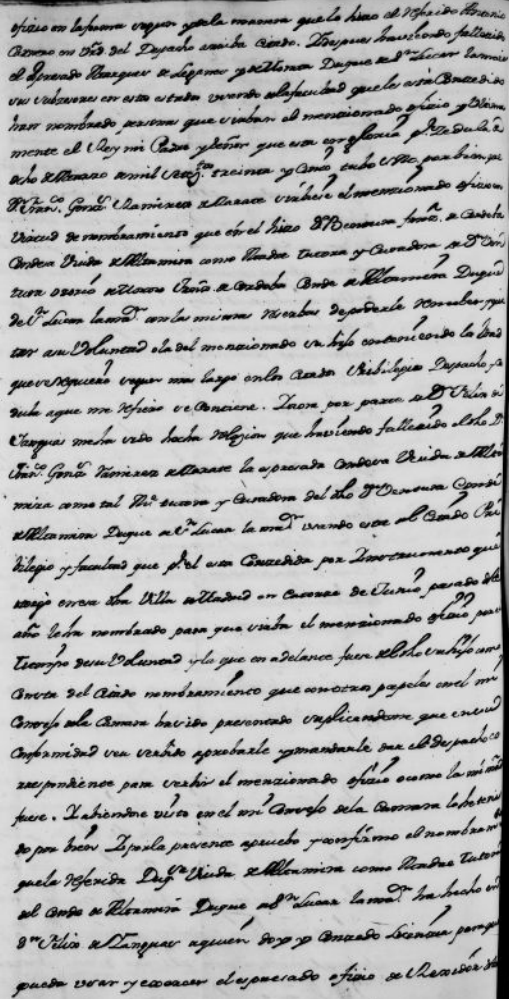 ofizio en la forma segun y de la manera que lo hizo el referido Antonio
en vrd. del Despacho arriba Citado. Y despues haviendo fallecido
el Marques de Leganes y Duque de Sn. Lucar la maior
sus subcesores en este estado usando de la facultad que les esta Concedida
han nombrado personas que sirban el mencionado ofizio y
mente el Rey mi Padre y señor que esta en gloria pr. Zedula de
ocho de Marzo de mil setezs. treinta y Cinco tubo por bien que
Dn. Franco. Gonz. Ramirez de Zarate sirbiese el mencionado ofizio en
Virtud de nombramiento que en el hizo Da. Bentura fernz. de Cordoba
Condesa Viuda de Altamira como Madre tutora y Curadora de Dn. Ven
tura osorio de Moscoso fernz. de Cordoba Conde de Altamira Duque
de Sn. Lucar la maor. con la misma de poderle remober y qui
tar a su Voluntad o la del mencionado su hijo conteniendo la
que se requiere segun mas largo en los Citados Pribilegio Despacho y Ze
dula a que me refiero se Contiene. Y aora por parte de Dn. Felix de
Vargas me ha sido hecha relazion que haviendo fallecido el dho Dn.
Franco. Gonz. Ramirez de Zarate la expresada Condesa Viuda de Alta
mira como tal Me. tutora y Curadora del dho Dn. Ventura Conde
de Altamira Duque de Sn. Lucar la maor. usando esta del Citado Pri
bilegio y facultad que pr. el esta Concedida por Instrumento que
otorgo en esa dha Villa de Madrid en Catorze de Junio pasado de este
año le ha nombrado para que sirba el mencionado ofizio por el
tiempo de su Voluntad y lo que en adelante fuere del dho su hijo como
Consta del Citado nombramiento que con otros papeles en el mi
Consejo de la Camara ha sido presentado suplicandome que en su
Conformidad sea serbido aprobarle y mandarle dar el despacho co
rrespondiente para serbir el mencionado ofizio o como la mi mrd.
fuese. Y abiendose visto en el mi Consejo de la Camara lo he teni
do por bien Y por la presente apruebo y confirmo el nombramto.
que la referida Duqsa. Viuda de Altamira como Madre tutora
del Conde de Altamira Duque de Sn. Lucar la maor. ha hecho en
Dn. Felix de Vargas a quien doy y Concedo Licencia para que
pueda usar y exercer el expresado ofizio de Rexidor de